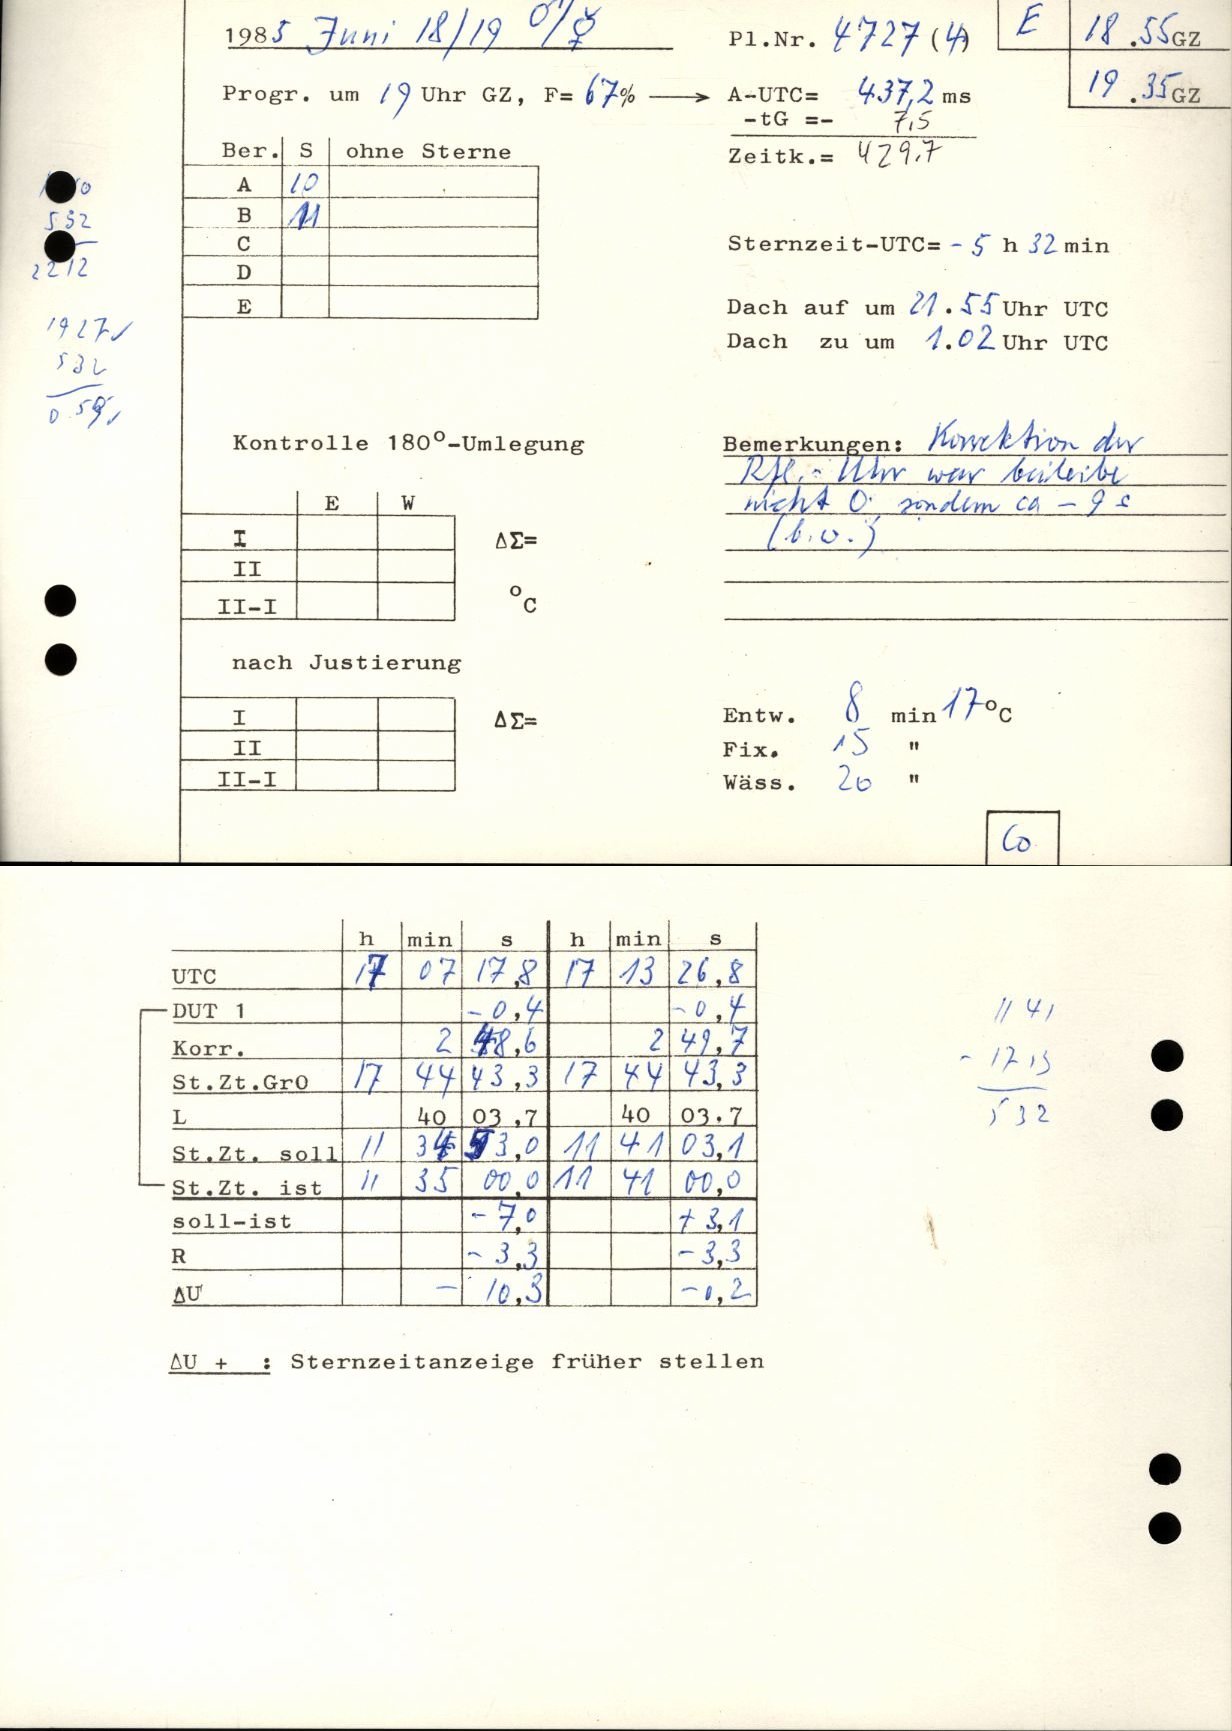 1985 Juni 18/19 ♂/☿
Pl.Nr. 4727 (4)
E 18.55 GZ
19.35 GZ
Progr. um 19 Uhr GZ, F= 67% → A-UTC= 437,2 ms
-tG =- 7,5
Zeitk.= 429.7
Ber. S ohne Sterne
A 10
B 11
C
D
E
532
2212
1927✓
532
0 59✓
Sternzeit-UTC= - 5 h 32 min
Dach auf um 21.55 Uhr UTC
Dach zu um 1.02 Uhr UTC
Kontrolle 180°-Umlegung
E W
I ΔΣ=
II
II-I °C
Bemerkungen: Korrektion der
Rfl.-Uhr war beileibe
nicht 0, sondern ca - 9 s
(b.w.)
nach Justierung
I ΔΣ=
II
II-I
Entw. 8 min 17°C
Fix. 15 "
Wäss. 20 "
Co
h min s h min s
UTC 17 07 17,8 17 13 26,8
DUT 1 -0,4 -0,4
Korr. 2 48,6 2 49,7
St.Zt.Gr0 17 44 43,3 17 44 43,3
L 40 03,7 40 03.7
St.Zt. soll 11 34 53,0 11 41 03,1
St.Zt. ist 11 35 00,0 11 41 00,0
soll-ist -7,0 +3,1
R -3,3 -3,3
ΔU - 10,3 -0,2
11 41
- 17 13
5 32
ΔU + : Sternzeitanzeige früher stellen